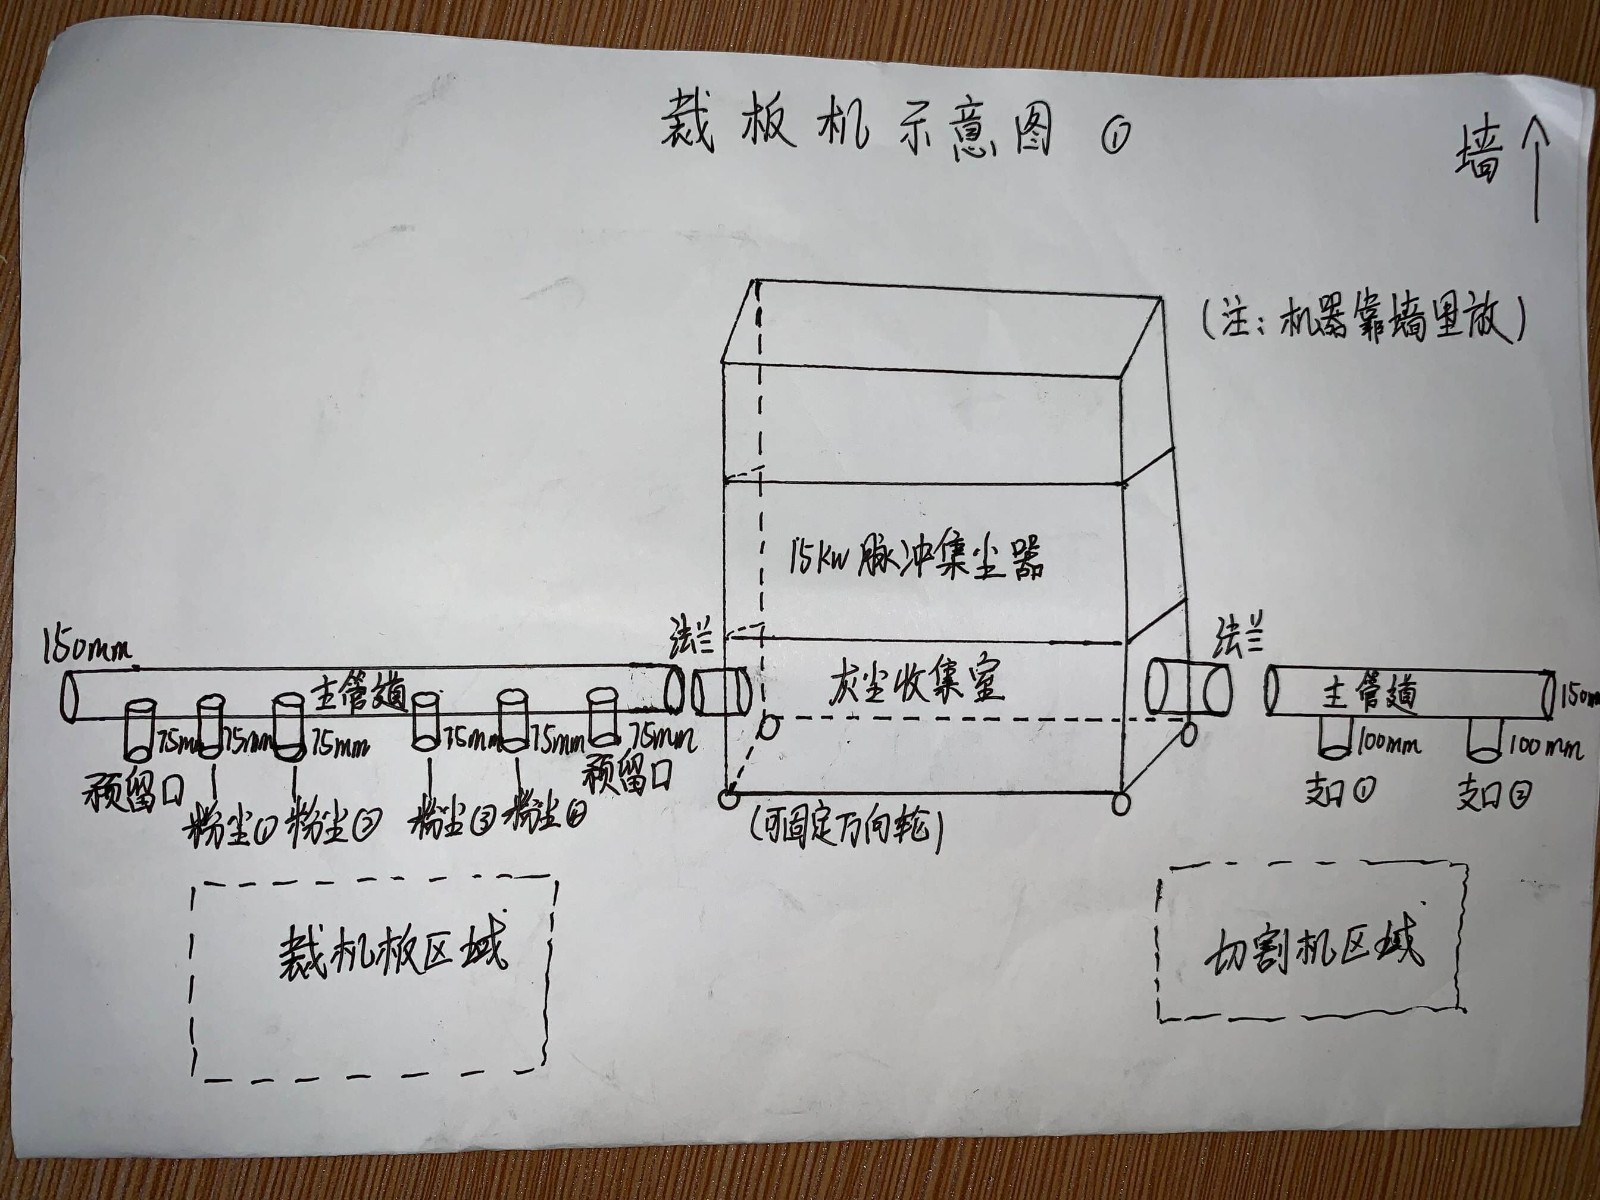 裁板机示意图①
墙
(注:机器靠墙里放)
15KW脉冲集尘器
150mm
法兰
法兰
灰尘收集室
主管道
主管道
150mm
75mm
75mm
75mm
75mm
75mm
75mm
100mm
100mm
预留口
预留口
支口①
支口②
粉尘①
粉尘②
粉尘③
粉尘④
(可固定万向轮)
裁机板区域
切割机区域